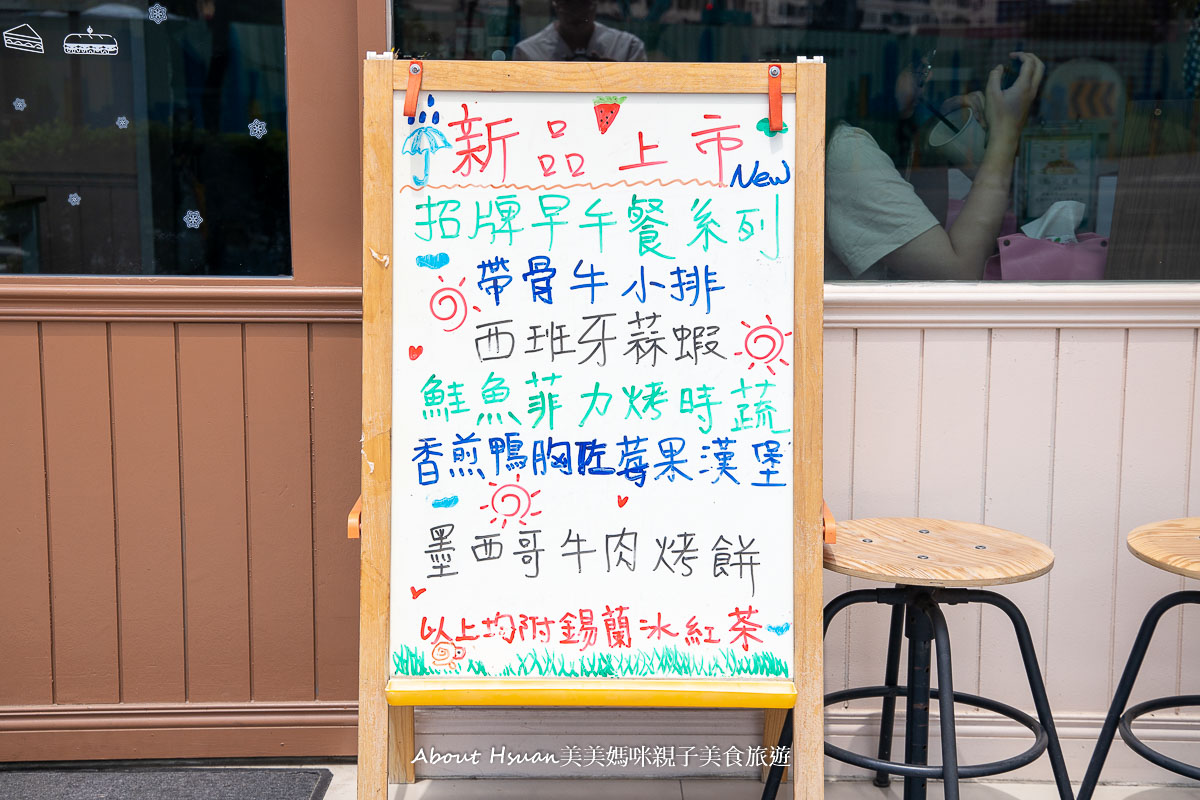 新品上市
New
招牌早午餐系列
帶骨牛小排
西班牙蒜蝦
鮭魚菲力烤時蔬
香煎鴨胸佐莓果漢堡
墨西哥牛肉烤餅
以上均附錫蘭冰紅茶
About Hsuan美美媽咪親子美食旅遊